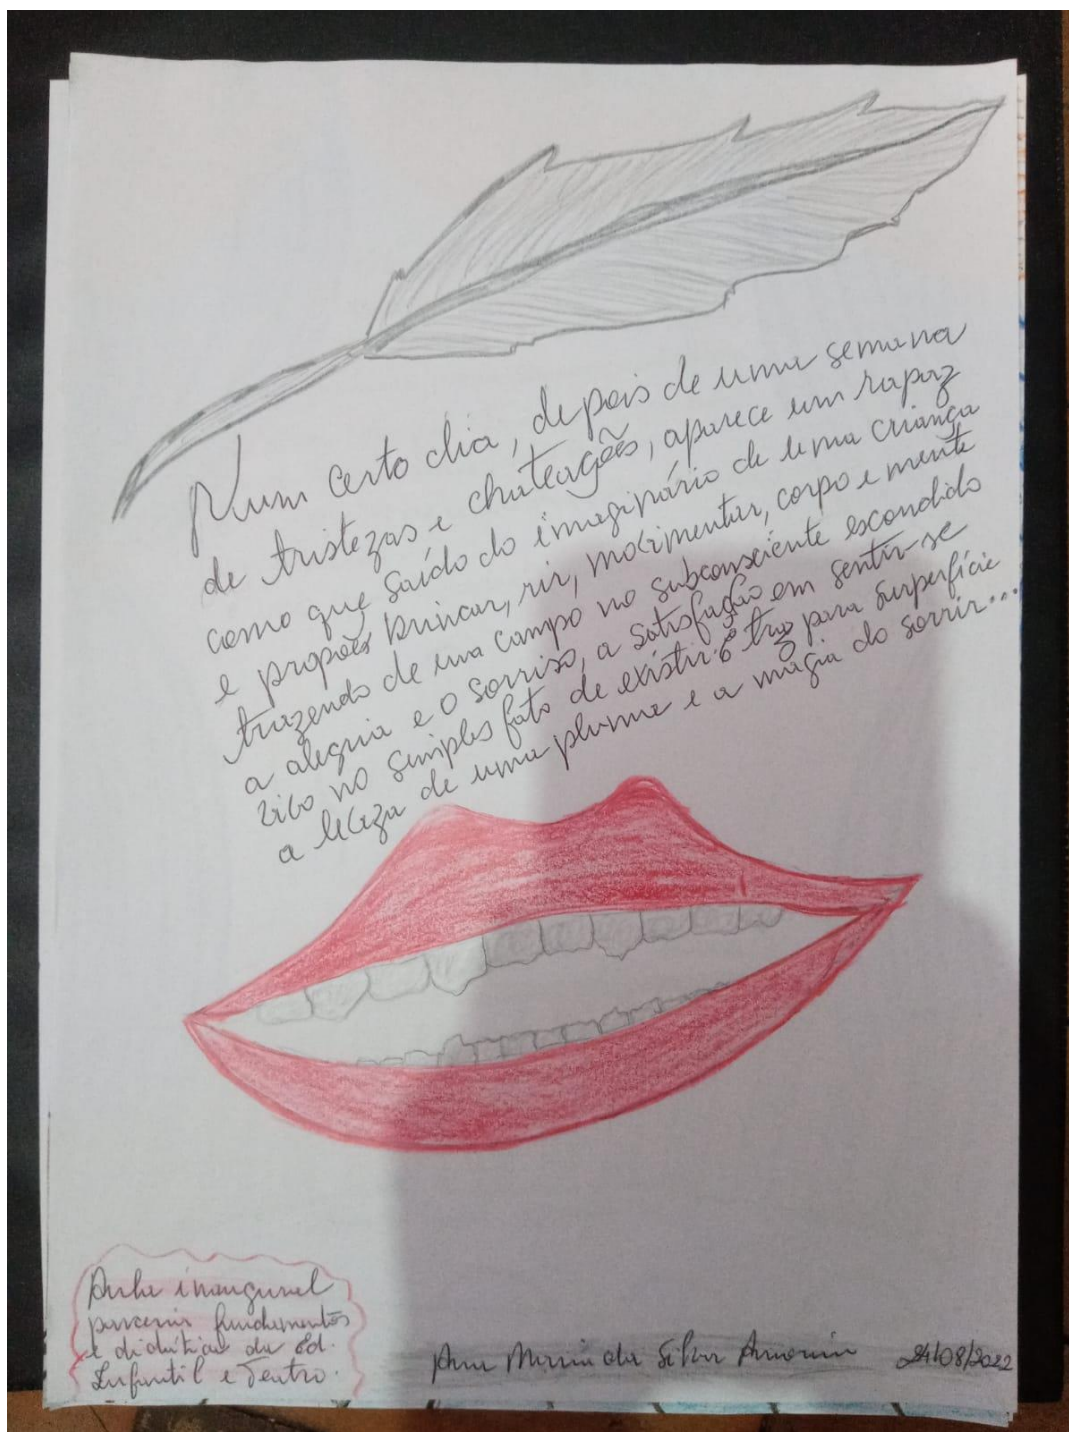 Num certo dia, depois de uma semana
de tristezas e chateações, aparece um rapaz
como que saído do imaginário de uma criança
e propões brincar, rir, movimentar, corpo e mente
trazendo de um campo no subconsciente escondido
a alegria e o sorriso, a satisfação em sentir-se
vivo no simples fato de existir e traz para superfície
a leveza de uma pluma e a magia do sorrir...
Aula inaugural
parceria fundamentos
e didática da Ed.
Infantil e Teatro.
Ana Maria da Silva Amorim 24/08/2022